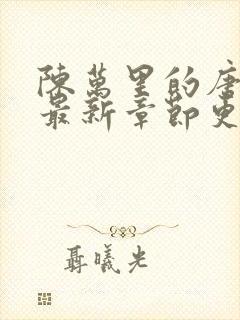 陳萬里的唐
最新章節更
聶曦光